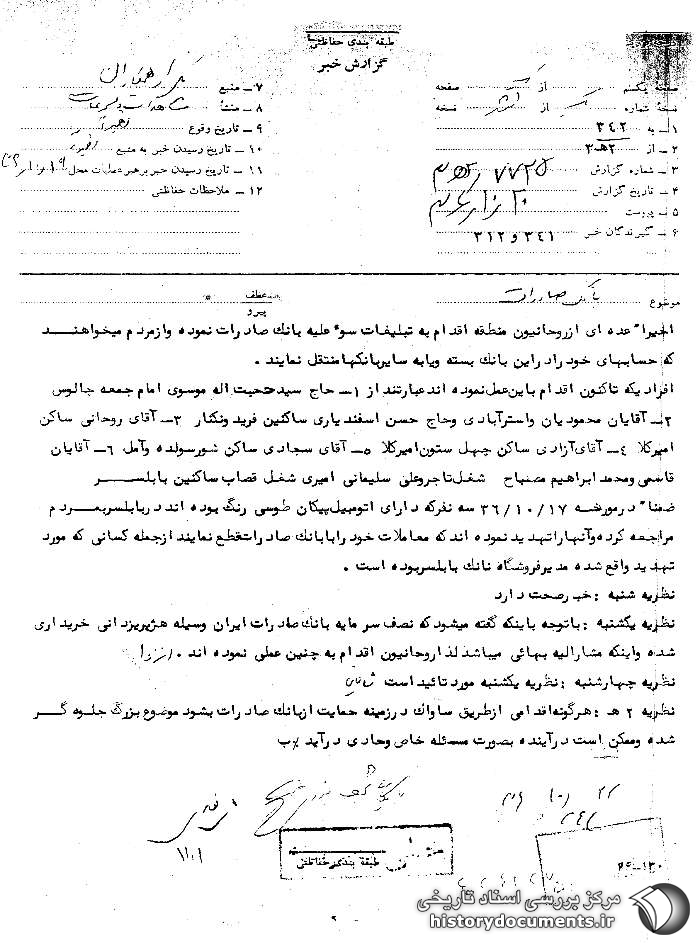 طبقه بندی حفاظتی
گزارش خبر
صفحه یکم از صفحه
نسخه شماره از نسخه
۱ـ به ۳۴۲
۲ـ از ۲هـ۳
۳ـ شماره گزارش
۴ـ تاریخ گزارش
۵ـ پیوست
۶ـ گیرندگان خبر ۳۴۱ و ۳۱۲
۷ـ منبع همکاران
۸ـ منشأ
۹ـ تاریخ وقوع اخیرا
۱۰ـ تاریخ رسیدن خبر به منبع اخیرا
۱۱ـ تاریخ رسیدن خبر برهبر عملیات محل
۱۲ـ ملاحظات حفاظتی
موضوع بانک صادرات
عطف
پیرو
اخیرا" عده ای ازروحانیون منطقه اقدام به تبلیغات سوء علیه بانک صادرات نموده وازمردم میخواهند
که حسابهای خودرادراین بانک بسته وبابه سایربانکهامنتقل نمایند .
افرادیکه تاکنون اقدام باین عمل نموده اند عبارتند از ۱ـ حاج سیدحجیت اله موسوی امام جمعه چالوس
۲ـ آقایان محمودیان واسترآبادی وحاج حسن اسفندیاری ساکنین فریدونکنار ۳ـ آقای روحانی ساکن
امیرکلا ۴ـ آقای آزادی ساکن چهل ستون امیرکلا ۵ـ آقای سجادی ساکن شورسولده وآمل ۶ـ آقایان
قاسمی ومحمد ابراهیم مصباح شغل تاجروعلی سلیمانی امیری شغل قصاب ساکنین بابلسر
ضمنا" درمورخه ۳۶/۱۰/۱۷ سه نفرکه دارای اتومبیل پیکان طوسی رنگ بوده اند دربابلسربمردم
مراجعه کرده وآنهاراتهدید نموده اند که معاملات خودرابابانک صادرات قطع نمایند ازجمله کسانی که مورد
تهدید واقع شده مدیرفروشگاه نانک بابلسربوده است .
نظریه شنبه : خبرصحت دارد
نظریه یکشنبه : باتوجه باینکه گفته میشود که نصف سرمایه بانک صادرات ایران وسیله هژبریزدانی خریداری
شده واینکه مشارالیه بهائی میباشد لذا روحانیون اقدام به چنین عملی نموده اند .
نظریه چهارشنبه : نظریه یکشنبه مورد تائید است
نظریه ۲ هـ : هرگونه اقدامی ازطریق ساواک درزمینه حمایت ازبانک صادرات بشود موضوع بزرگ جلوه گر
شده وممکن است درآینده بصورت مسئله خاص وحادی درآید
طبقه بندی حفاظتی
مرکز بررسی اسناد تاریخی
historydocuments.ir